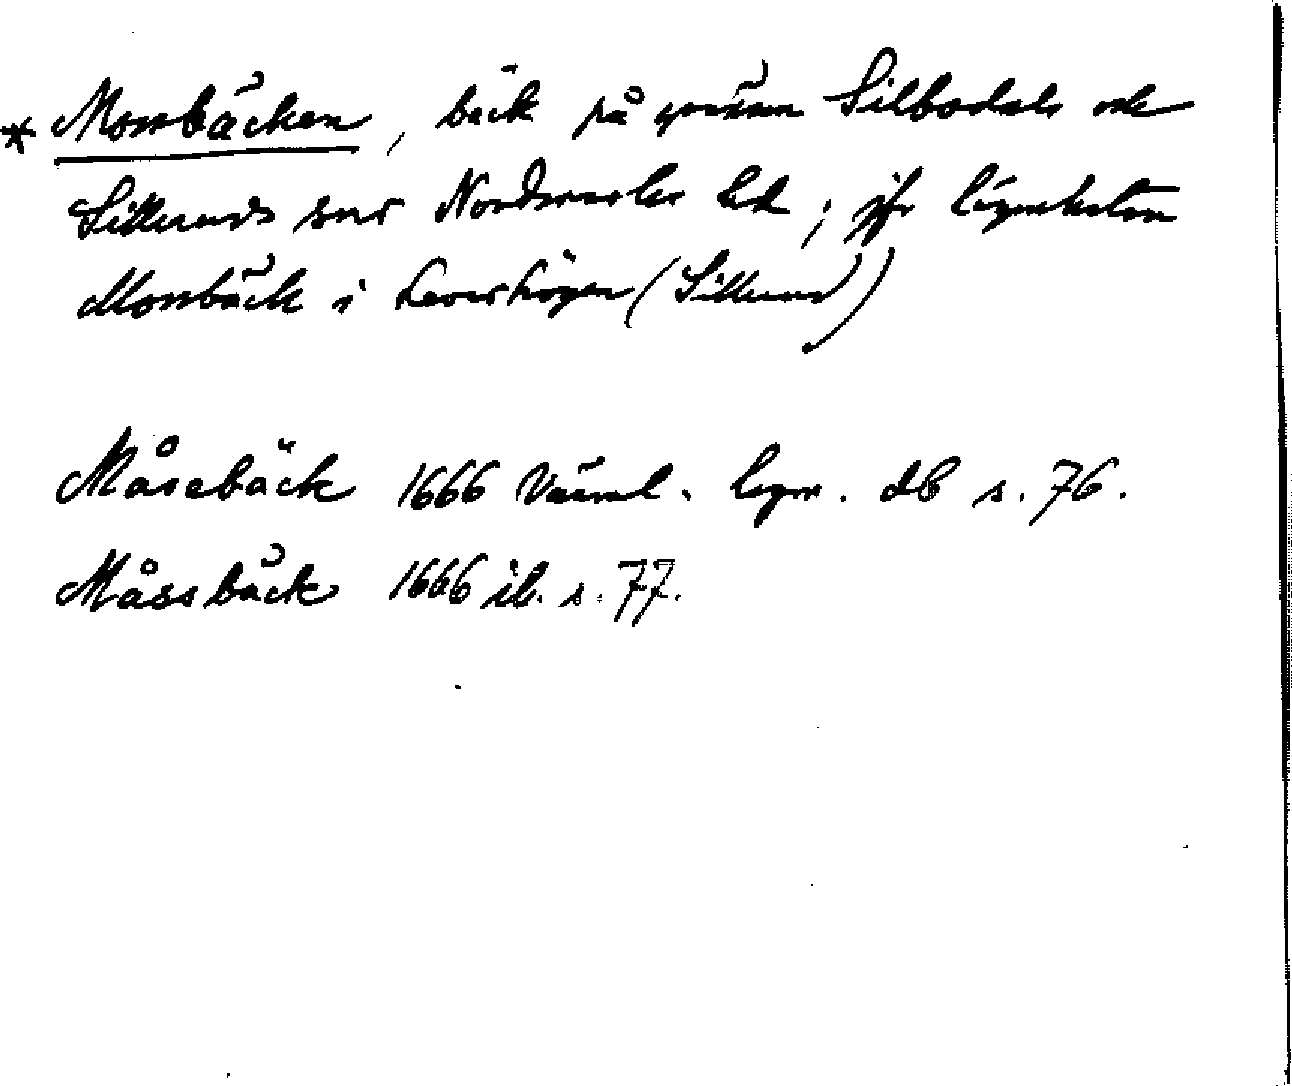 * Mossbäcken, bäck på gränsen Silbodals och
Silleruds snr Nordmarks hd; jfr lägenheten
Mossbäck i (Sillerud)
Måsebäck 1666 Värml. db s. 76.
Måssbäck 1666 ib. s. 77.